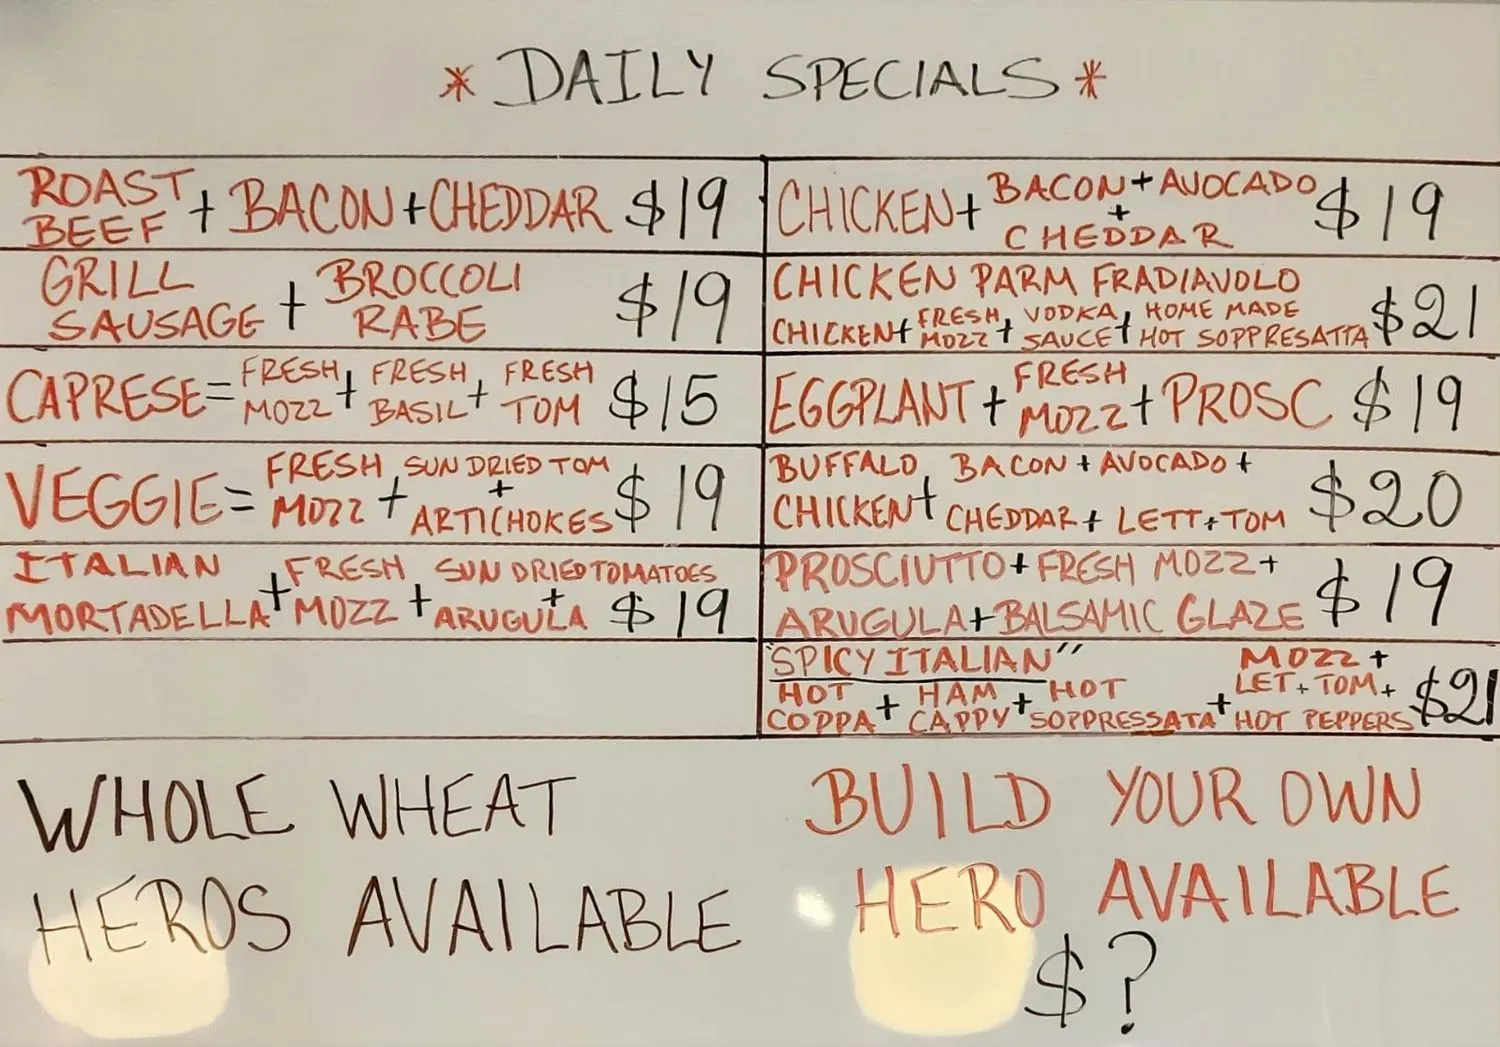 * DAILY SPECIALS *
ROAST BEEF + BACON + CHEDDAR $19
GRILL SAUSAGE + BROCCOLI RABE $19
CAPRESE = FRESH MOZZ + FRESH BASIL + FRESH TOM $15
VEGGIE = FRESH MOZZ + SUN DRIED TOM + ARTICHOKES $19
ITALIAN MORTADELLA + FRESH MOZZ + SUN DRIED TOMATOES + ARUGULA $19
CHICKEN + BACON + AVOCADO + CHEDDAR $19
CHICKEN PARM FRADIAVOLO
CHICKEN + FRESH MOZZ + VODKA SAUCE + HOME MADE HOT SOPPRESATTA $21
EGGPLANT + FRESH MOZZ + PROSC $19
BUFFALO CHICKEN + BACON + AVOCADO + CHEDDAR + LETT + TOM $20
PROSCIUTTO + FRESH MOZZ + ARUGULA + BALSAMIC GLAZE $19
"SPICY ITALIAN"
HOT COPPA + HAM CAPPY + HOT SOPPRESSATA + MOZZ + LET + TOM + HOT PEPPERS $21
WHOLE WHEAT
HEROS AVAILABLE
BUILD YOUR OWN
HERO AVAILABLE
$?